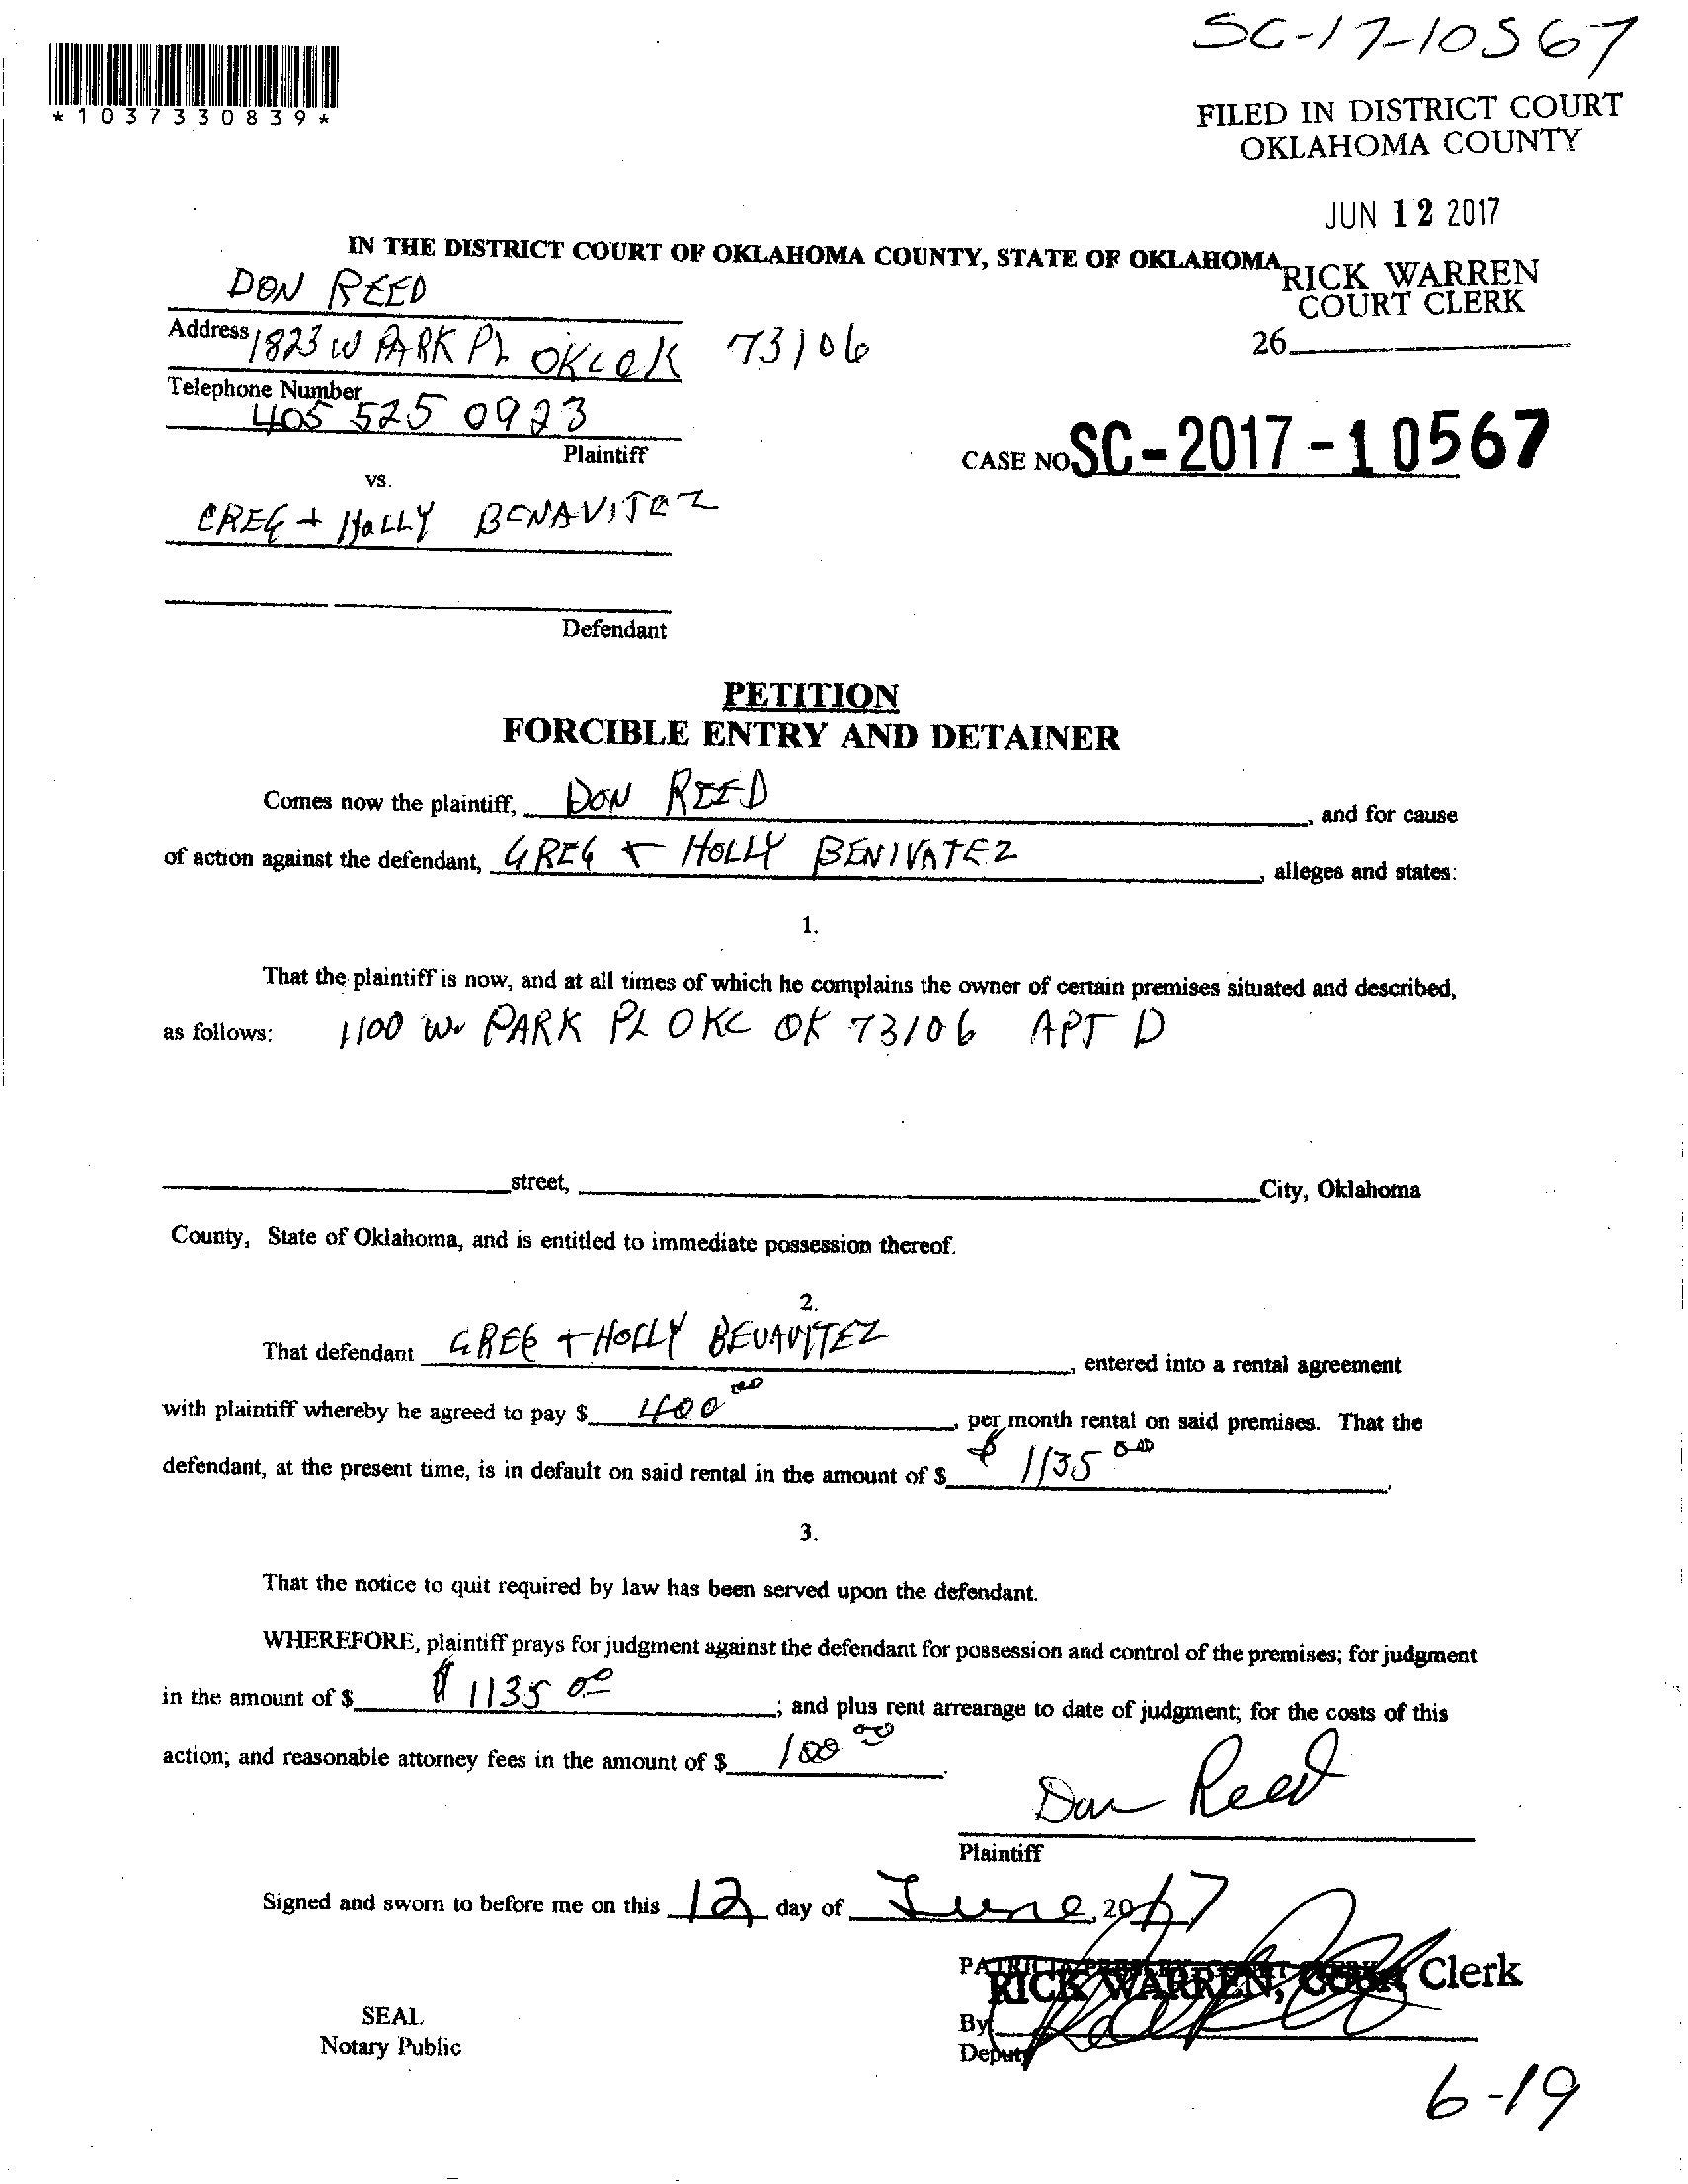 SC-17-10567
*1037330839*
FILED IN DISTRICT COURT
OKLAHOMA COUNTY
JUN 12 2017
IN THE DISTRICT COURT OF OKLAHOMA COUNTY, STATE OF OKLAHOMA
RICK WARREN
COURT CLERK
26
DON REED
Address 1823 W PARK PL OKC OK 73106
Telephone Number
405 525 0923
Plaintiff
CASE NO SC-2017-10567
vs.
GREG + HOLLY BENAVITEZ
Defendant
PETITION
FORCIBLE ENTRY AND DETAINER
Comes now the plaintiff, DON REED, and for cause
of action against the defendant, GREG + HOLLY BENIVATEZ, alleges and states:
1.
That the plaintiff is now, and at all times of which he complains the owner of certain premises situated and described,
as follows: 1100 W. PARK PL OKC OK 73106 APT D
street, City, Oklahoma
County, State of Oklahoma, and is entitled to immediate possession thereof.
2.
That defendant GREG + HOLLY BENAVITEZ, entered into a rental agreement
with plaintiff whereby he agreed to pay $ 400 00, per month rental on said premises. That the
defendant, at the present time, is in default on said rental in the amount of $ $ 1135 00.
3.
That the notice to quit required by law has been served upon the defendant.
WHEREFORE, plaintiff prays for judgment against the defendant for possession and control of the premises; for judgment
in the amount of $ $ 1135 00; and plus rent arrearage to date of judgment; for the costs of this
action; and reasonable attorney fees in the amount of $ 100 00.
Don Reed
Plaintiff
Signed and sworn to before me on this 12 day of June, 2017
RICK WARREN, Court Clerk
SEAL
Notary Public
By
Deputy
6-19